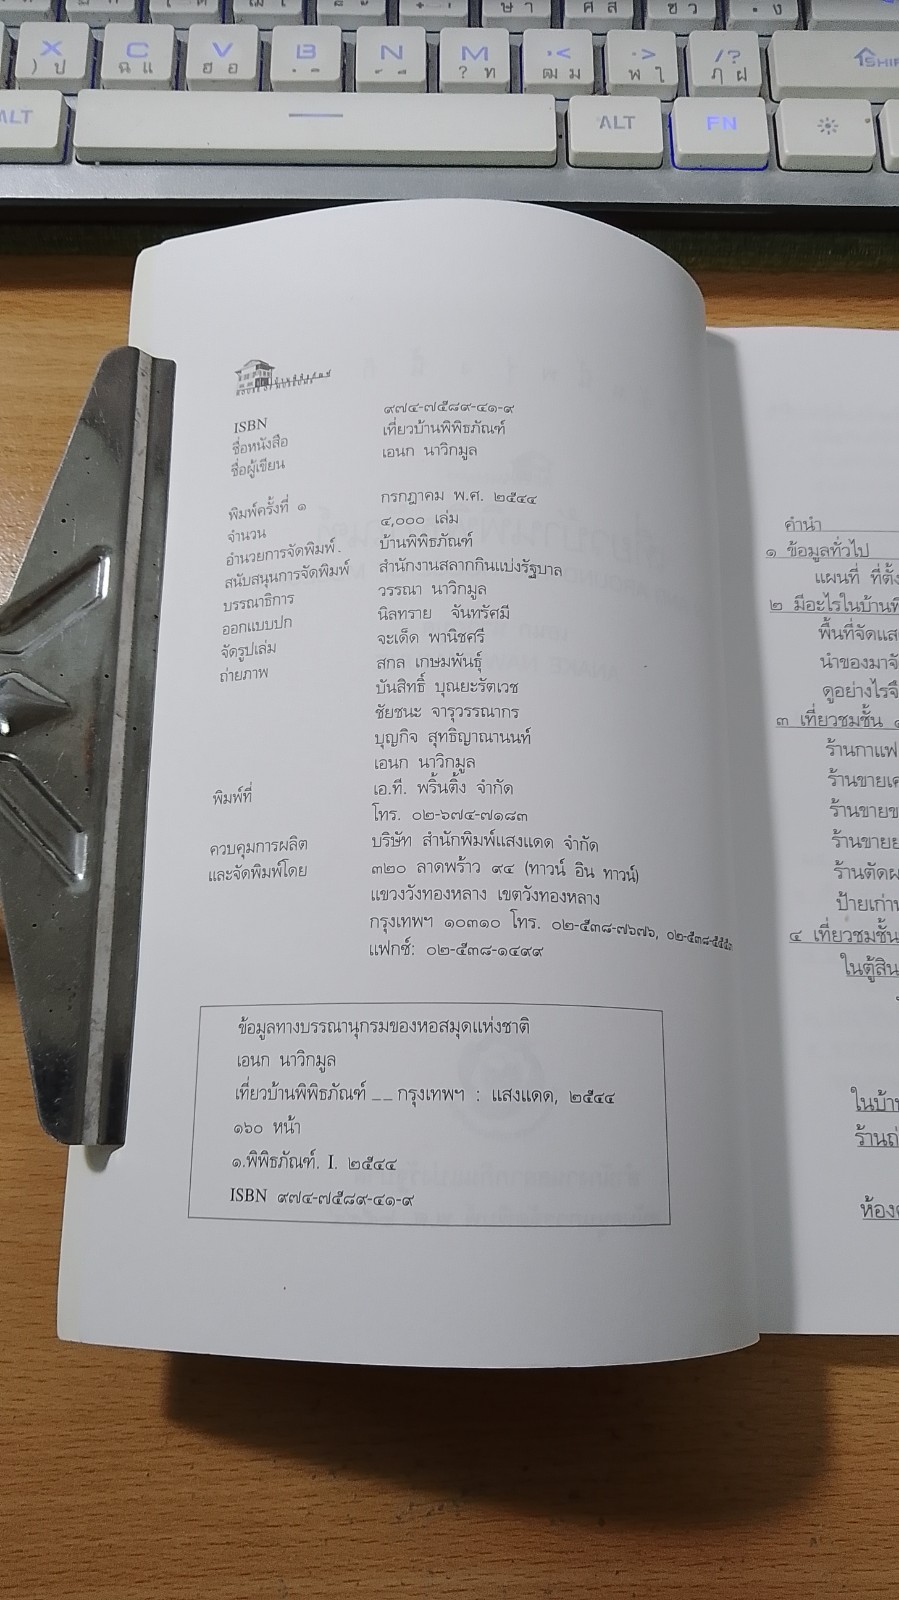 X C V B N M
ALT ALT FN
บ้านพิพิธภัณฑ์
HOUSE OF MUSEUMS
ISBN ๙๗๔-๗๕๘๙-๔๑-๙
ชื่อหนังสือ เที่ยวบ้านพิพิธภัณฑ์
ชื่อผู้เขียน เอนก นาวิกมูล
พิมพ์ครั้งที่ ๑ กรกฎาคม พ.ศ. ๒๕๔๔
จำนวน ๔,๐๐๐ เล่ม
อำนวยการจัดพิมพ์. บ้านพิพิธภัณฑ์
สนับสนุนการจัดพิมพ์ สำนักงานสลากกินแบ่งรัฐบาล
บรรณาธิการ วรรณา นาวิกมูล
ออกแบบปก นิลทราย จันทรัศมี
จัดรูปเล่ม จะเด็ด พานิชศรี
ถ่ายภาพ สกล เกษมพันธุ์
บันสิทธิ์ บุณยะรัตเวช
ชัยชนะ จารุวรรณากร
บุญกิจ สุทธิญาณานนท์
เอนก นาวิกมูล
พิมพ์ที่ เอ.ที. พริ้นติ้ง จำกัด
โทร. ๐๒-๖๗๔-๗๑๘๓
ควบคุมการผลิต บริษัท สำนักพิมพ์แสงแดด จำกัด
และจัดพิมพ์โดย ๓๒๐ ลาดพร้าว ๙๔ (ทาวน์ อิน ทาวน์)
แขวงวังทองหลาง เขตวังทองหลาง
กรุงเทพฯ ๑๐๓๑๐ โทร. ๐๒-๕๓๘-๗๖๗๖,
แฟกซ์: ๐๒-๕๓๘-๑๔๙๙
ข้อมูลทางบรรณานุกรมของหอสมุดแห่งชาติ
เอนก นาวิกมูล
เที่ยวบ้านพิพิธภัณฑ์ __ กรุงเทพฯ : แสงแดด, ๒๕๔๔
๑๖๐ หน้า
๑.พิพิธภัณฑ์. I. ๒๕๔๔
ISBN ๙๗๔-๗๕๘๙-๔๑-๙
คำนำ
๑ ข้อมูลทั่วไป
แผนที่ ที่ตั้ง
๒ มีอะไรในบ้านพิ
พื้นที่จัดแส
นำของมาจั
ดูอย่างไรจึ
๓ เที่ยวชมชั้น
ร้านกาแฟ
ร้านขายเค
ร้านขายข
ร้านขายย
ร้านตัดผ
ป้ายเก่า
๔ เที่ยวชมชั้น
ในตู้สิน
ในบ้า
ร้านถ่
ห้อง